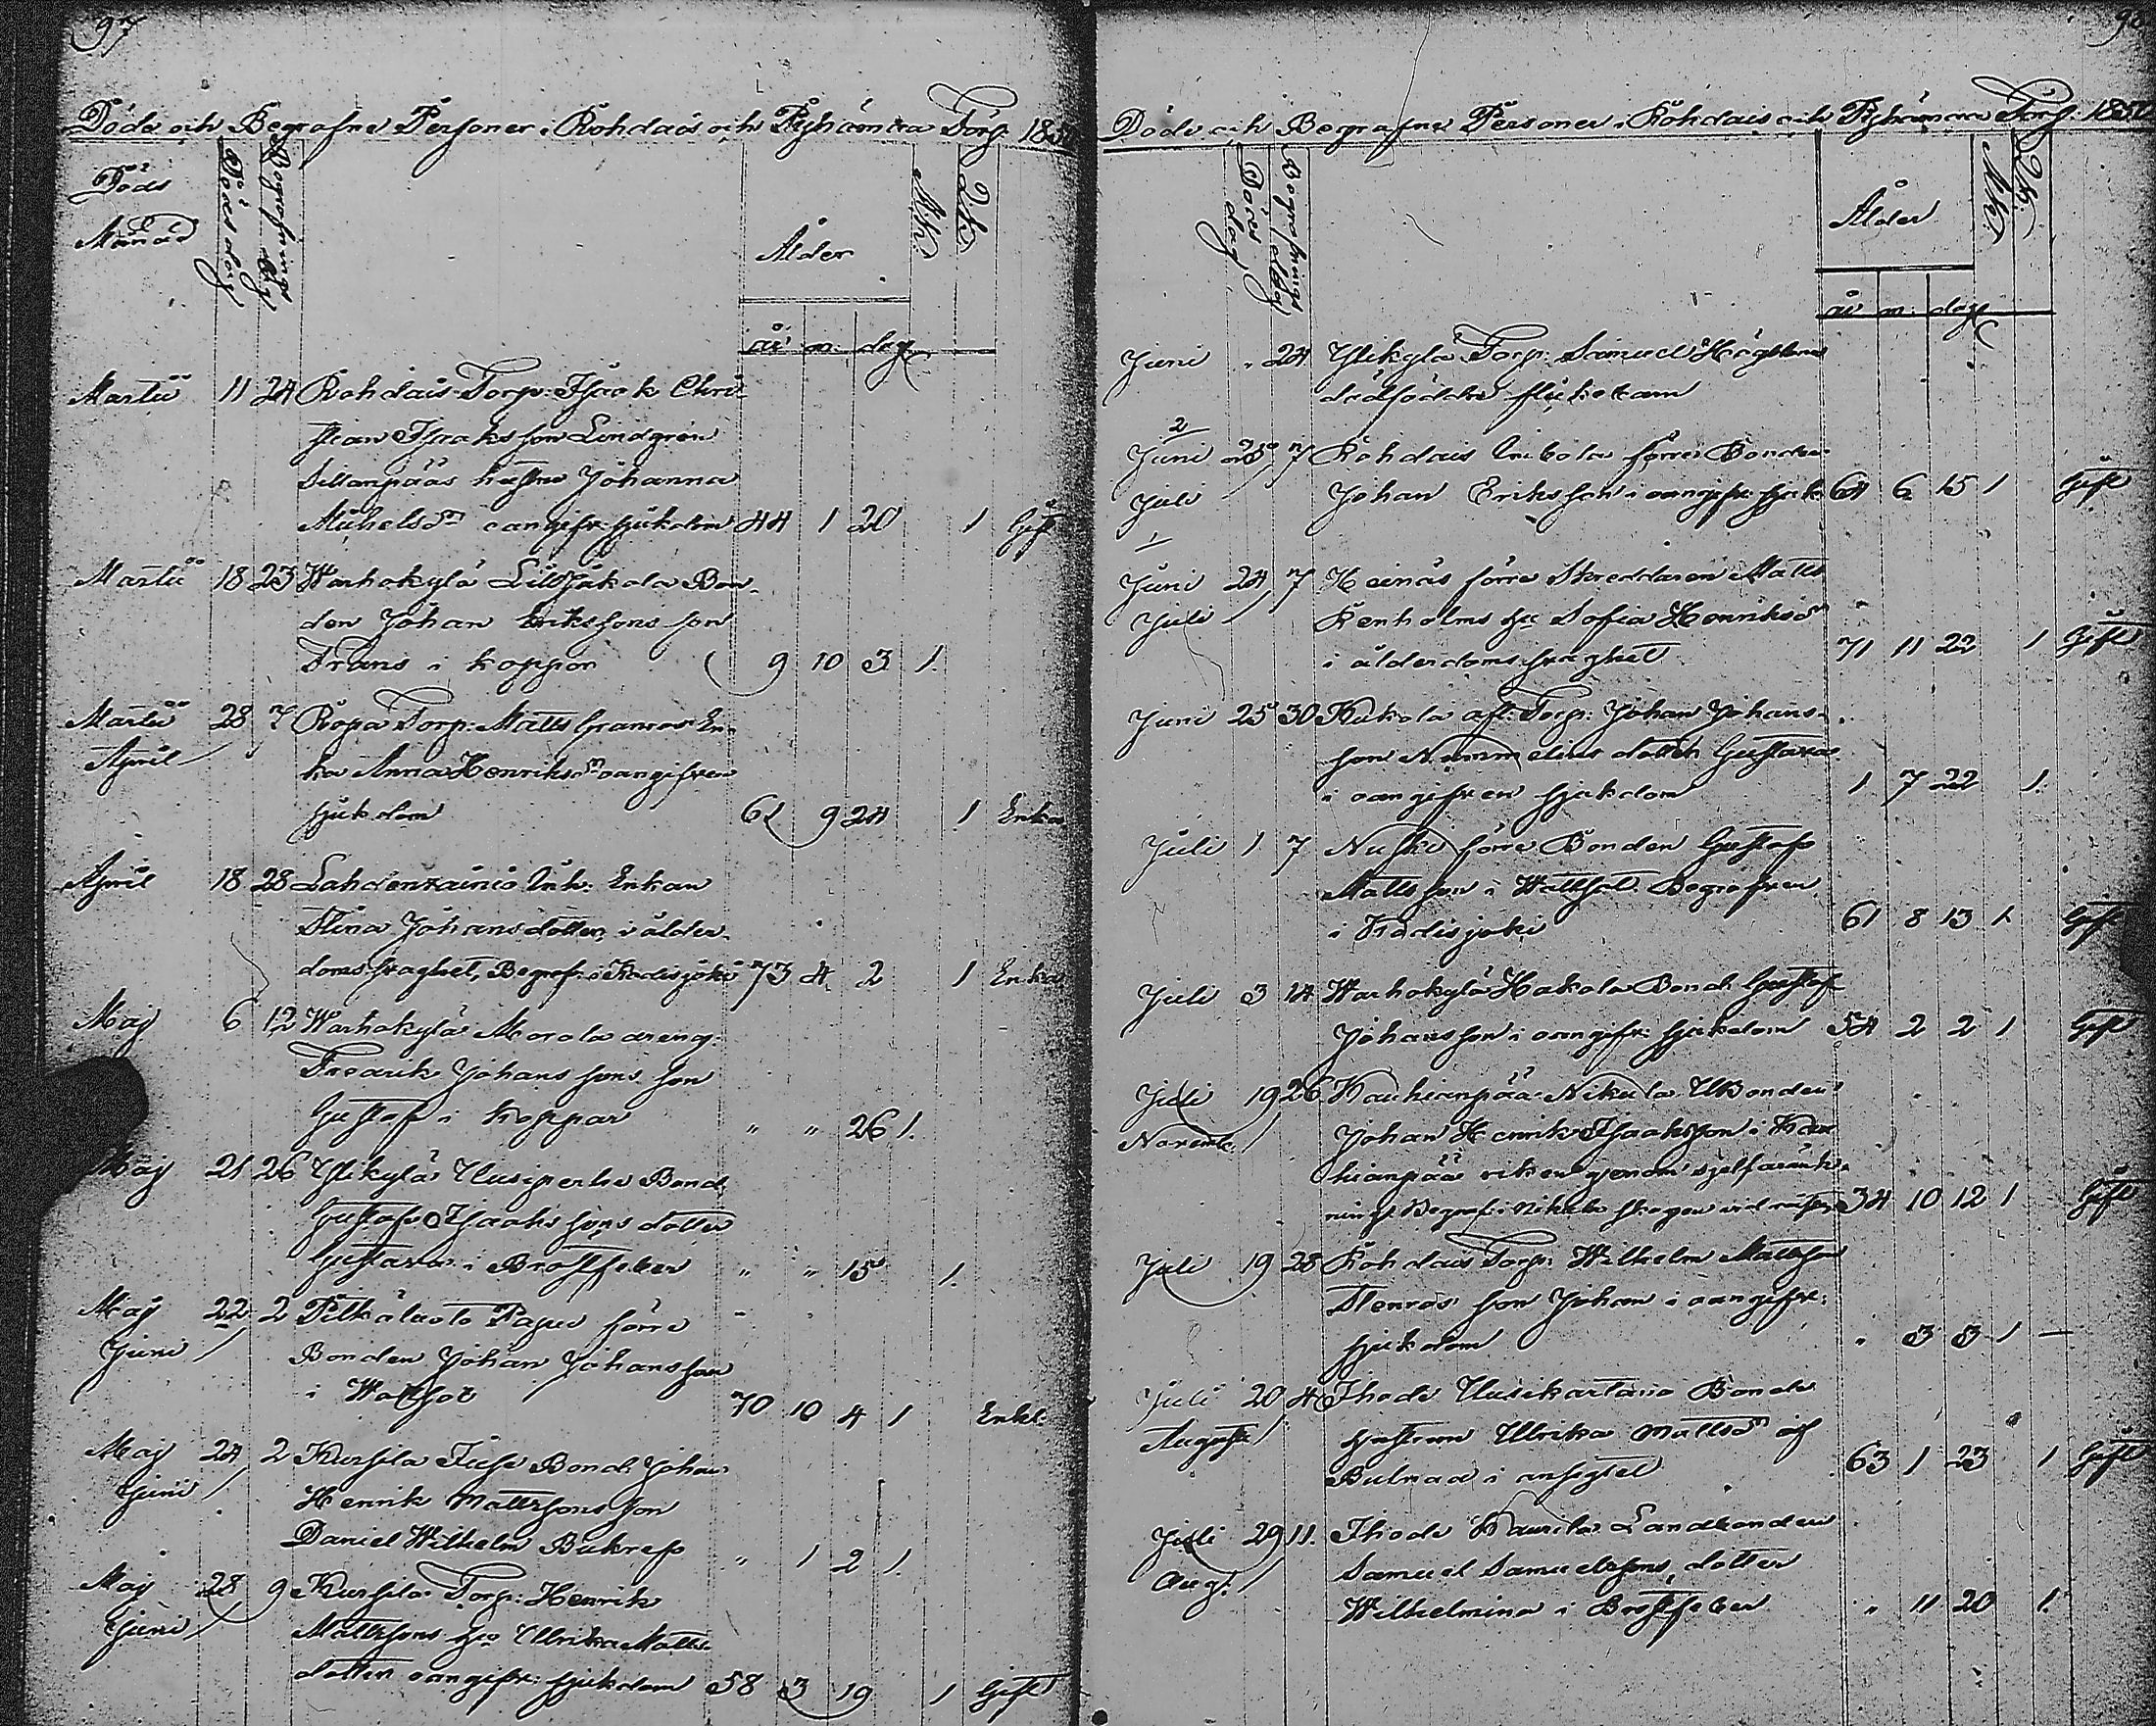 97
Döde och Begrafne Personer i Kohdais och Pyhämaa Förs: 185
Döds Månad
Dödes dag
Begrafnings dag
Ålder
M.k.
Q.k.
år m. dag
Martii 11 24 Rohdais Torp: Isaak Chri-
stian Isaksson Lindgren
Sillanpääs hustru Johanna
Michelsdr oangifv: sjukdom 44 1 20 1 Gift
Martii 18 23 Warhokylä Lill Jakola Bon-
den Johan Erikssons son
Frans i koppor 9 10 3 1
Martii 28 7 Ropa Torp: Matts Granroos En-
April
ka Anna Henriksdr oangifven
sjukdom 61 9 24 1 Enka
April 18 28 Lahdenvainio Inh: Enkan
Stina Johansdotter, i ålder-
domssvaghet, Begrafv: i Kodisjoki 73 4 2 1 Enka
Maj 6 12 Warhokylä Marola dreng:
Fredrik Johanssons son
Gustaf i koppor " " 26 1
Maj 21 26 Ylikylä Uusiperhe Bond.
Gustaf Isaakssons dotter
Gustava i Bröstfeber " " 15 1
Maj 22 2 Pitkäluoto Papus förre
Juni
Bonden Johan Johansson
i Wattsot 70 10 4 1 Enkl.
Maj 24 2 Kursila Bond: Johan
Junii
Henrik Mattssons son
Daniel Wilhelm Bukref " 1 2 1
Maj 28 9 Kursila Torp: Henrik
Junii
Mattssons hu Ulrika Matts-
dotter oangifv: sjukdom 58 3 19 1 Gift
98
Döde och Begrafne Personer i Rohdais och Pyhämaa Förs: 185
Dödes dag
Begrafnings dag
Ålder
M.k.
Q.k.
år m: dag
Juni " 24 Ylikylä Torp: Samuel Högbloms
dödfödda flickebarn
2
Juni 25 7 Rohdais Uribola förre Bonden
Juli Johan Eriksson i oangifv: sjuk: 64 6 15 1 Gift
1
Juni 24 7 Heinäs förre Skreddaren Matts
Juli
Renholms hu Sofia Henriksdr
i ålderdomssvaghet 71 11 22 1 Gift
Juni 25 30 Kukola afl: Torp: Johan Johans-
son Nummelins dotter Gustava
i oangifven sjukdom 1 7 22 1
Juli 1 7 Nuski förre Bonden Gustaf
Mattsson i Wattsot Begrafven
i Kodisjoki 61 8 13 1 Gift
Juli 3 14 Warhokylä Hakola Bond: Gustaf
Johansson i oangifv: sjukdom 54 2 2 1 Gift
Juli 19 26 Kauhianpää Nikula Bonden
Novemb:
Johan Henrik Isaaksson i Kau-
hianpää viken genom sjelfdränk-
ning: Begraf: i Nikula skogen vid 34 10 12 1 Gift
Juli 19 28 Rohdais Torp: Wilhelm Mattsson
Stenroos son Johan i oangifv:
sjukdom " 3 3 1 —
Juli 20 4 Ihode Uusikartano Bonde
Augusti
hustrun Ulrika Mattsdr af
Bulnad i ansigtet 63 1 23 1 Gift
Juli 29 11. Ihode Laurila Landbonden
Aug:
Samuel Samuelssons dotter
Wilhelmina i Bröstfeber " 11 20 1